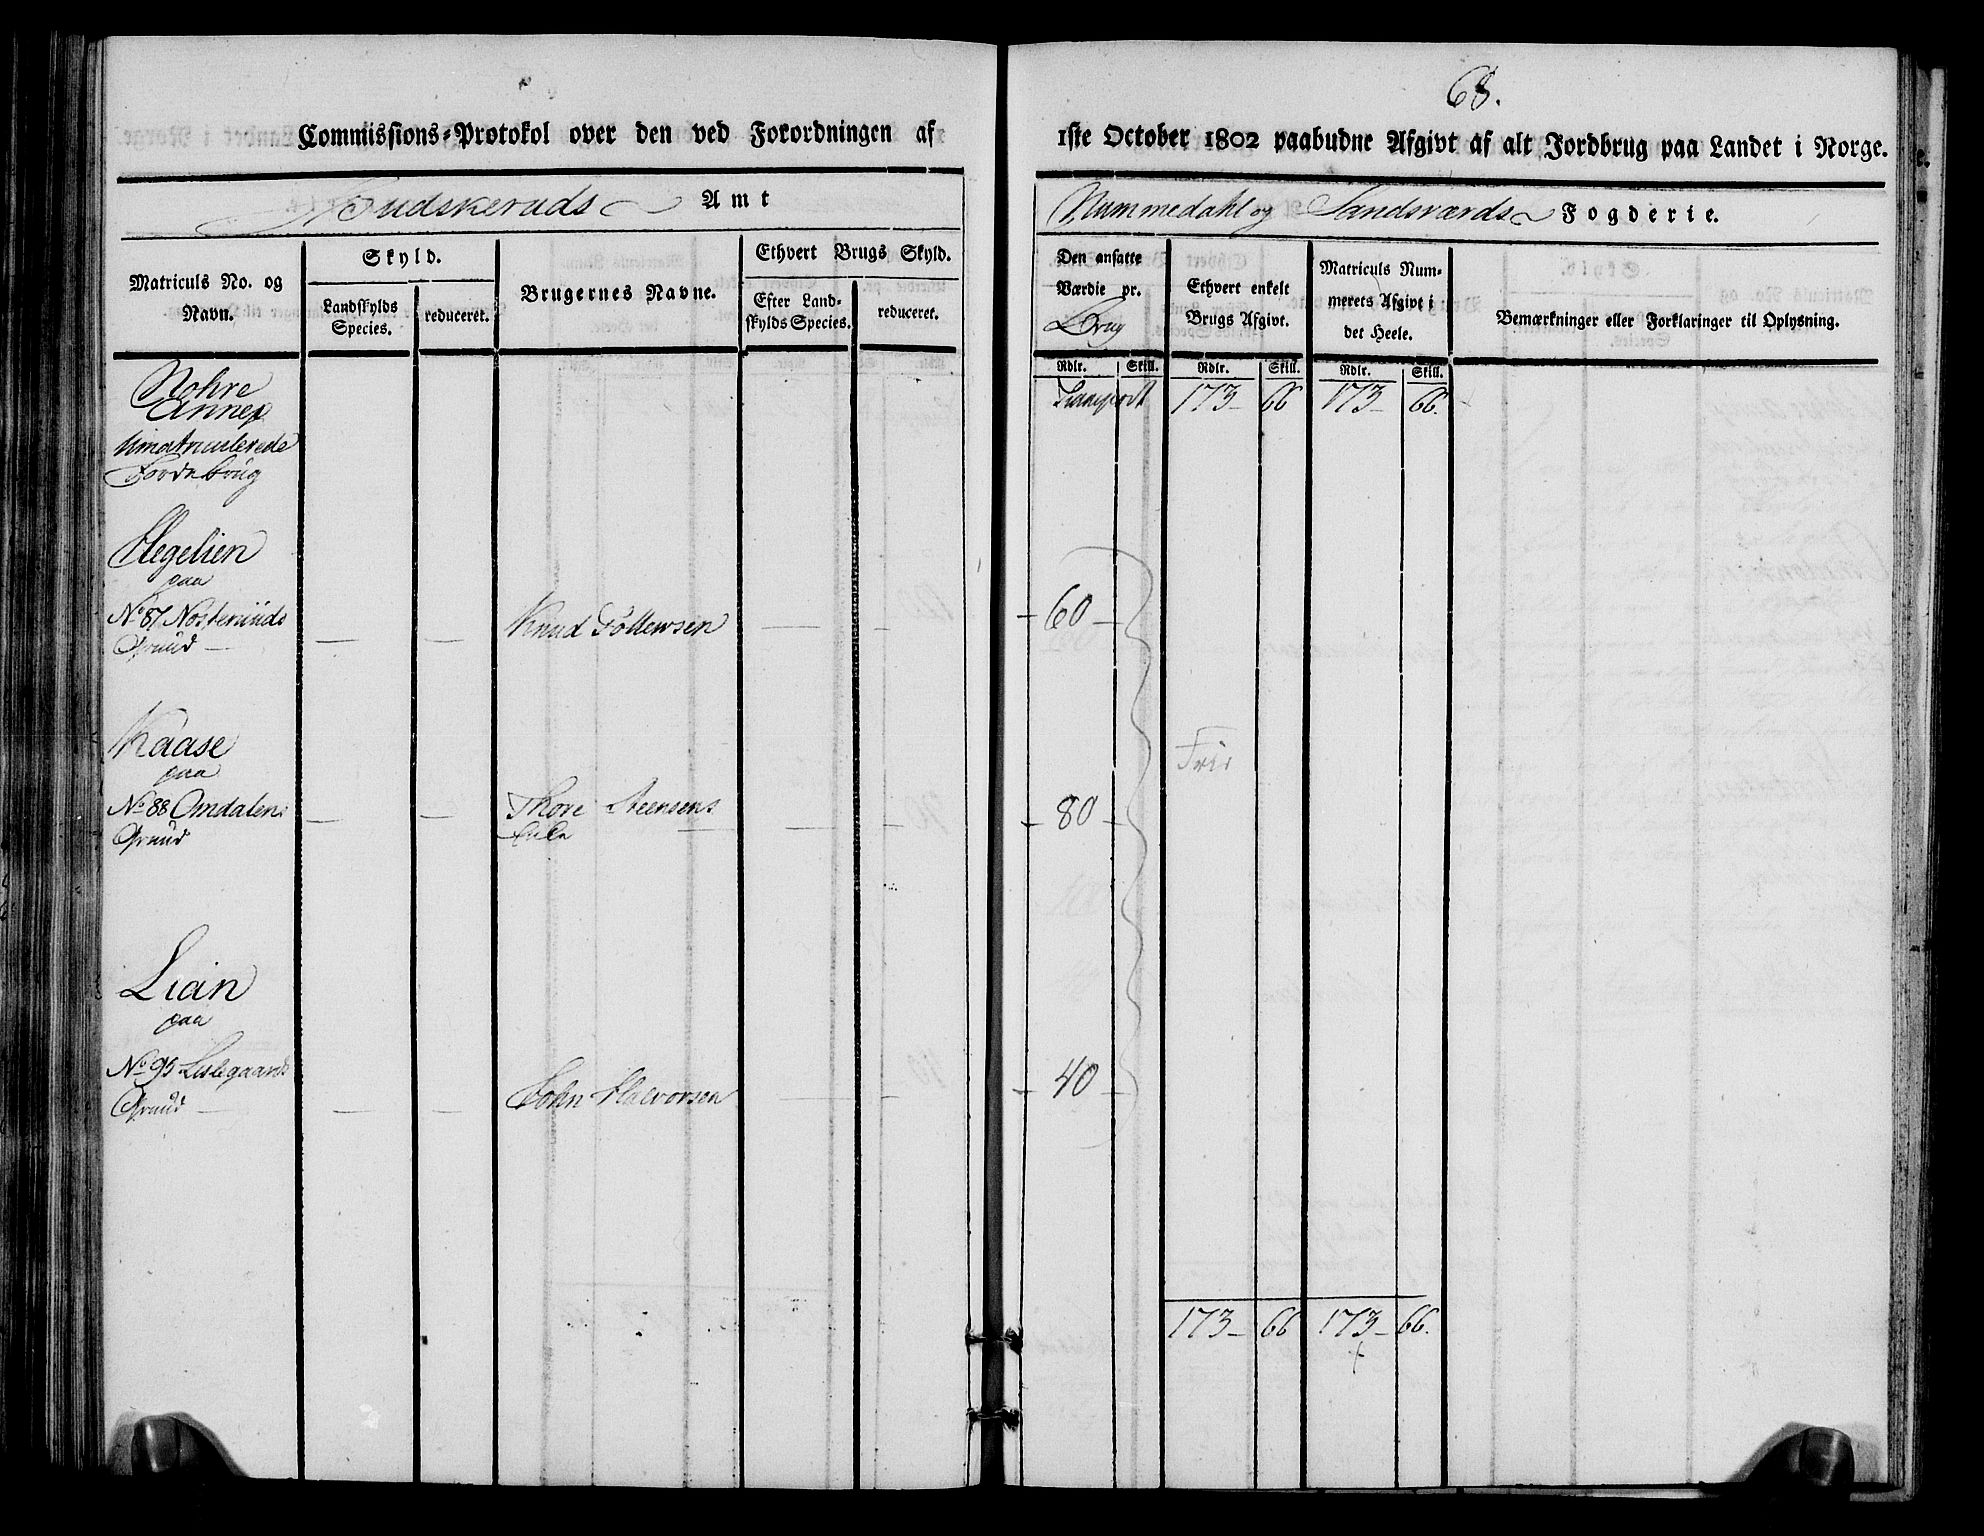 68.
Commissions-Protokol over den ved Forordningen af
1ste October 1802 paabudne Afgivt af alt Jordbrug paa Landet i Norge.
Budskeruds Amt
Nummedahl og Sandsværds Fogderie.
Matriculs No. og Navn.
Skyld.
Landskylds Species.
reduceret.
Brugernes Navne.
Ethvert Brugs Skyld.
Efter Landskylds Species.
reduceret.
Den ansatte Værdie pr.
Brug
Ethvert enkelt Brugs Afgivt.
Matriculs Nummerets Afgivt i det Heele.
Bemærkninger eller Forklaringer til Oplysning.
Rdlr. Skill. Rdlr. Skill. Rdlr. Skill.
Nohre
Annex
Transport 173 – 66 173 – 66.
Umatriculerede
Jordebrug
Hegelien
paa
No 87 Nosteruds
Grund — — — Knud Tollewsen — — – 60 –
Kaase
paa
Frie
No 88 Omdalens
Grund — — Thore Steensens — — – 80 –
Enke
Lian
paa
No 95 Lislegaards
Grund — — — John Halvorsen — — – 40 –
173 – 66 173 – 66.